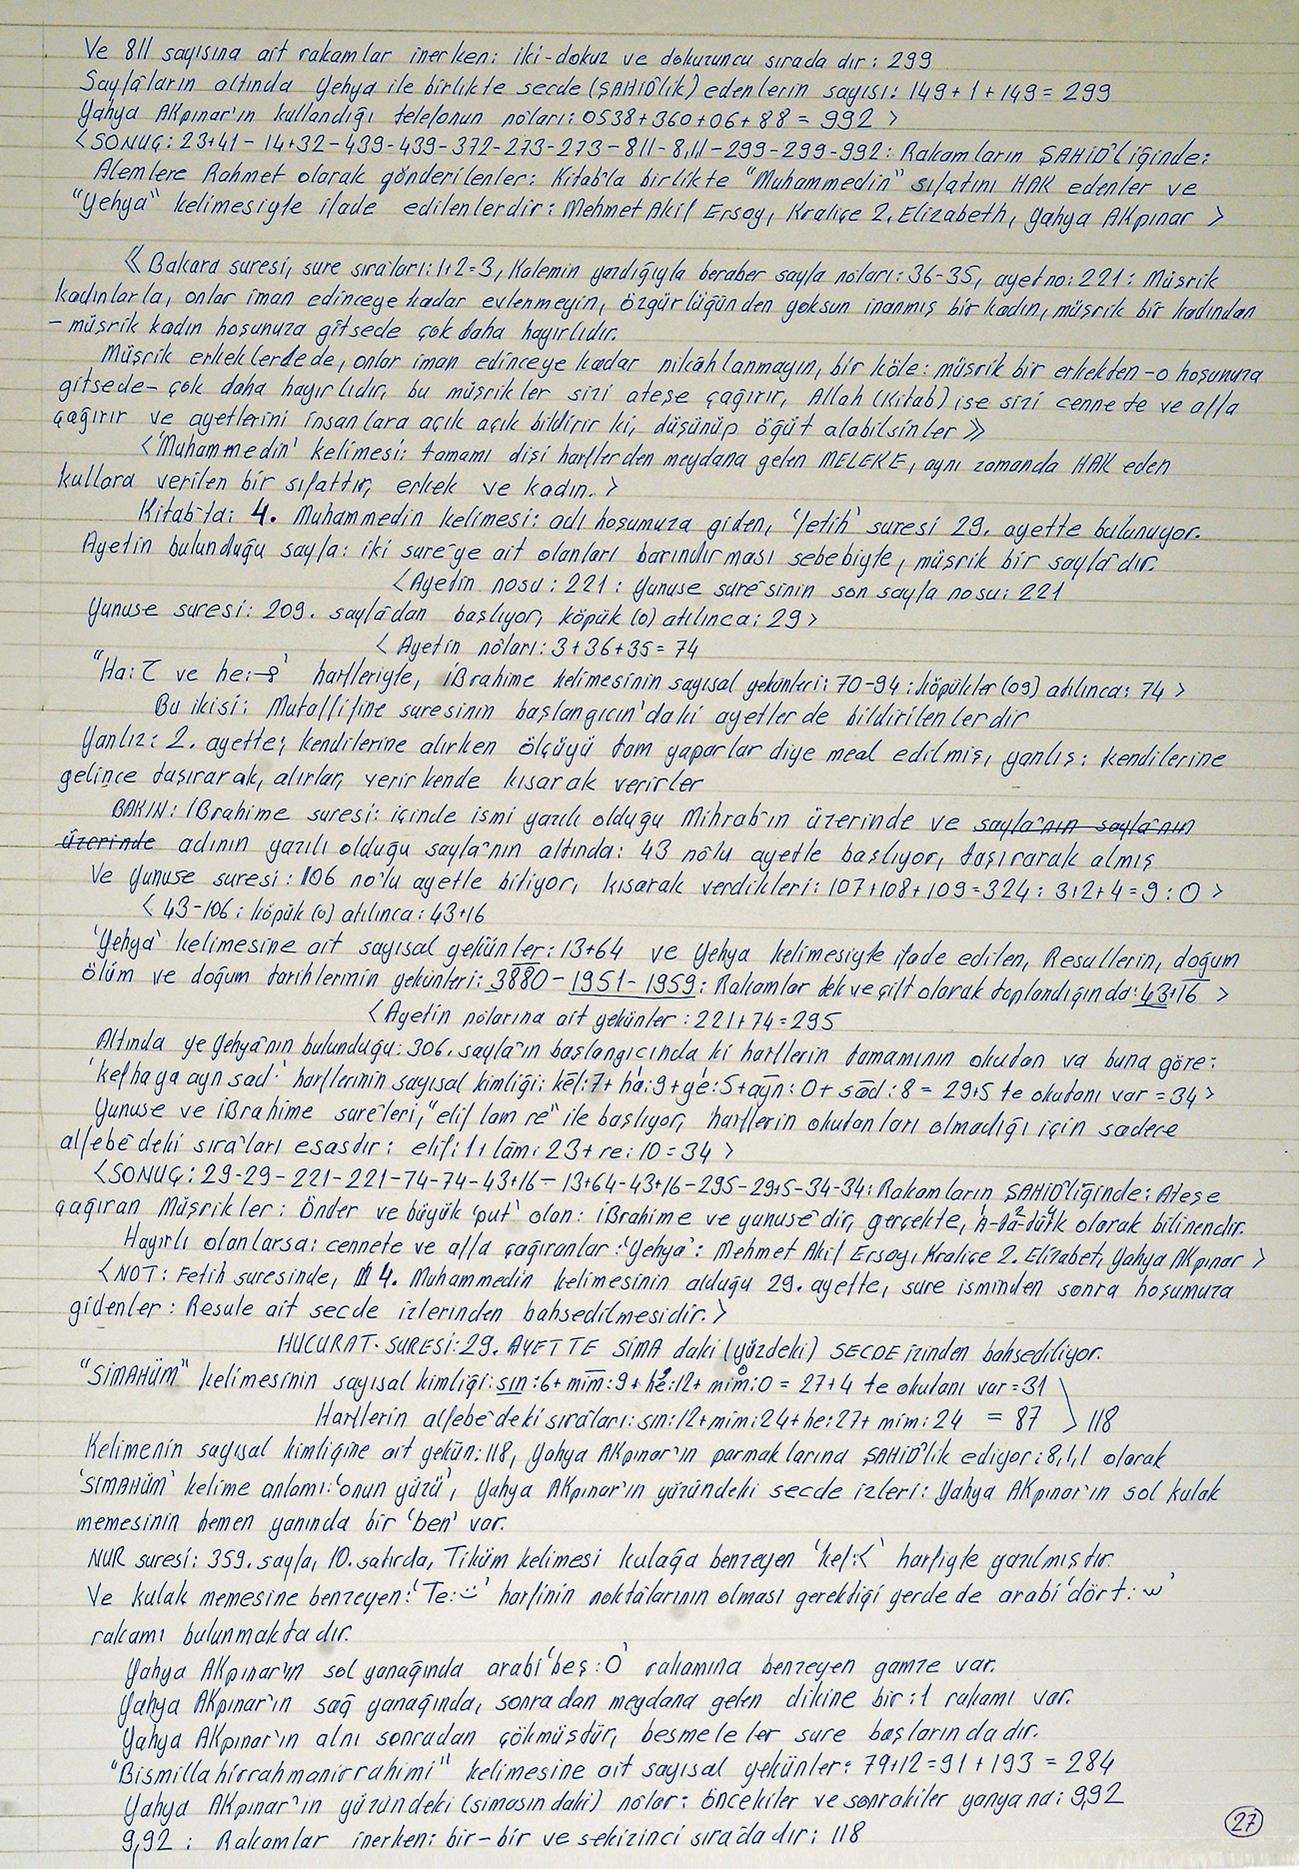 Ve 811 sayısına ait rakamlar inerken: iki-dokuz ve dokuzuncu sırada dır: 299
Sayfâların altında Yehya ile birlikte secde (ŞAHİD'lik) edenlerin sayısı: 149+1+149=299
Yahya AKpınar'ın kullandığı telefonun nôları: 0538+360+06+88=992 >
<SONUÇ: 23+41-14+32-439-439-372-273-273-811-8,1,1-299-299-992: Rakamların ŞAHİD'liğinde:
Alemlere Rahmet olarak gönderilenler: Kitab'la birlikte "Muhammedin" sıfatını HAK edenler ve
"Yehya" kelimesiyle ifade edilenlerdir: Mehmet Akif Ersoy, Kraliçe 2. Elizabeth, Yahya AKpınar >
《Bakara suresi, sure sıraları: 1+2=3, Kalemin yazdığıyla beraber sayfa nôları: 36-35, ayet no: 221: Müşrik
kadınlarla, onlar iman edinceye kadar evlenmeyin, özgürlüğünden yoksun inanmış bir kadın, müşrik bir kadından
- müşrik kadın hoşunuza gitsede çok daha hayırlıdır.
Müşrik erkeklerdede, onlar iman edinceye kadar nikâhlanmayın, bir köle: müşrik bir erkekten -o hoşunuza
gitsede- çok daha hayırlıdır, bu müşrikler sizi ateşe çağırır, Allah (Kitab) ise sizi cennete ve affa
çağırır ve ayetlerini insanlara açık açık bildirir ki, düşünüp öğüt alabilsinler》
<'Muhammedin' kelimesi: tamamı dişi harflerden meydana gelen MELEKE, aynı zamanda HAK eden
kullara verilen bir sıfattır, erkek ve kadın. >
Kitab'ta: 4. Muhammedin kelimesi: adı hoşumuza giden, 'fetih' suresi 29. ayette bulunuyor.
Ayetin bulunduğu sayfa: iki sure'ye ait olanları barındırması sebebiyle, müşrik bir sayfâdır.
<Ayetin nosu: 221: Yunuse sure'sinin son sayfa nosu: 221
Yunuse suresi: 209. sayfâdan başlıyor, köpük (o) atılınca: 29>
<Ayetin nôları: 3+36+35=74
"Ha: ح ve he: ه" harfleriyle, iBrahime kelimesinin sayısal yekünleri: 70-94: köpükler (09) atılınca: 74 >
Bu ikisi: Mutaffifine suresinin başlangıcın'daki ayetlerde bildirilenlerdir
Yanlız: 2. ayette; kendilerine alırken ölçüyü tam yaparlar diye meal edilmiş, yanlış: kendilerine
gelince taşırarak, alırlar, verirkende kısarak verirler
BAKIN: iBrahime suresi: içinde ismi yazılı olduğu Mihrab'ın üzerinde ve sayfa'nın sayfa'nın
üzerinde adının yazılı olduğu sayfa'nın altında: 43 nô'lu ayetle başlıyor, taşırarak almış
Ve Yunuse suresi: 106 no'lu ayetle bitiyor, kısarak verdikleri: 107+108+109=324: 3+2+4=9:0 >
<43-106: köpük (o) atılınca: 43+16
'Yehya' kelimesine ait sayısal yekünler: 13+64 ve Yehya kelimesiyle ifade edilen, Resullerin, doğum
ölüm ve doğum tarihlerinin yekünleri: 3880-1951-1959: Rakamlar tek ve çift olarak toplandığında: 43+16 >
<Ayetin nôlarına ait yekünler: 221+74=295
Altında ye Yehya'nın bulunduğu: 306. sayfa'ın başlangıcında ki harflerin tamamının okutan va buna göre:
'kef ha ya ayn sad' harflerinin sayısal kimliği: kêf: 7+ hâ: 9+ yê: 5+ ayn: 0+ sâd: 8 = 29+5 te okutanı var = 34 >
Yunuse ve iBrahime sureleri, "elif lam re" ile başlıyor, harflerin okutanları olmadığı için sadece
alfebe'deki sıra'ları esasdır: elif: 1+ lâm: 23+ re: 10=34 >
<SONUÇ: 29-29-221-221-74-74-43+16-13+64-43+16-295-29+5-34-34: Rakamların ŞAHİD'liğinde: Ateşe
çağıran Müşrikler: Önder ve büyük 'put' olan: iBrahime ve yunuse'dir, gerçekte, olarak bilinendir.
Hayırlı olanlarsa: cennete ve affa çağıranlar: 'Yehya': Mehmet Akif Ersoy, Kraliçe 2. Elizabet, Yahya AKpınar >
<NOT: Fetih suresinde, 4. Muhammedin kelimesinin olduğu 29. ayette, sure isminden sonra hoşumuza
gidenler: Resule ait secde izlerinden bahsedilmesidir. >
HUCURAT. SURESİ: 29. AYETTE SİMA daki (yüzdeki) SECDE izinden bahsediliyor.
"SİMAHÜM" kelimesinin sayısal kimliği: sın: 6+ mîm: 9+ he: 12+ mim: 0 = 27+4 te okutanı var=31
Harflerin alfebe'deki sıraları: sın: 12+mim: 24+he: 27+ mim: 24 = 87 > 118
Kelimenin sayısal kimliğine ait yekün: 118, Yahya AKpınar'ın parmaklarına ŞAHİD'lik ediyor: 8,1,1 olarak
'SIMAHÜM' kelime anlamı: 'onun yüzü', Yahya AKpınar'ın yüzündeki secde izleri: Yahya AKpınar'ın sol kulak
memesinin hemen yanında bir 'ben' var.
NUR suresi: 359. sayfa, 10. satırda, Tiküm kelimesi kulağa benzeyen 'kef: ' harfiyle yazılmıştır.
Ve kulak memesine benzeyen: 'Te: ' harfinin noktâlarının olması gerektiği yerde de arabi 'dört: '
rakamı bulunmaktadır.
Yahya AKpınar'ın sol yanağında arabi 'beş: O' rakamına benzeyen gamze var.
Yahya AKpınar'ın sağ yanağında, sonradan meydana gelen dikine bir: 1 rakamı var.
Yahya AKpınar'ın alnı sonradan çökmüştür, besmeleler sure başlarında dır.
"Bismillahirrahmanirrahimi" kelimesine ait sayısal yekünler: 79+12=91+193=284
Yahya AKpınar'ın yüzündeki (simasındaki) nôlar: öncekiler ve sonrakiler yanyana: 9,92
9,92: Rakamlar inerken: bir-bir ve sekizinci sırada dır: 118
27